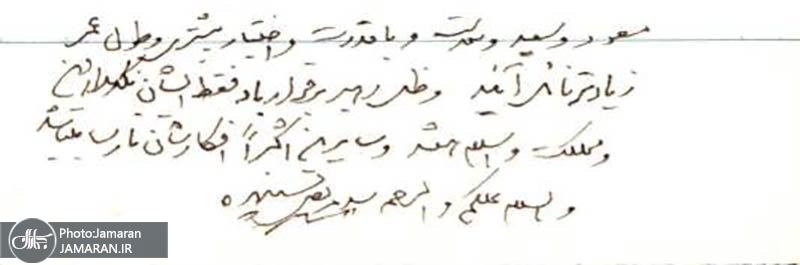 مسعود و سعید و با قدرت و اختیار بیشتر و طول عمر
زیادتر نائل آیند و ظل رهبر برقرار باد فقط ایشان
و مملکت و اسلام هستند و سایرین اکثراً افکارشان نارسا میباشد
والسلام علیکم و الرحمه سید
Photo:Jamaran
JAMARAN.IR